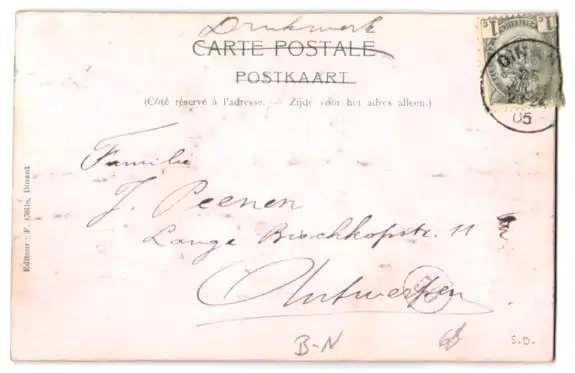 Drukwerk
CARTE POSTALE
POSTKAART
(Côté réservé à l'adresse. — Zijde voor het adres alleen.)
1 1
DIN
05
Familie
J. Peenen
Lange Bisschkopstr. 11
Antwerpen
Editeur : F. Colle, Dinant
B-N
S.D.